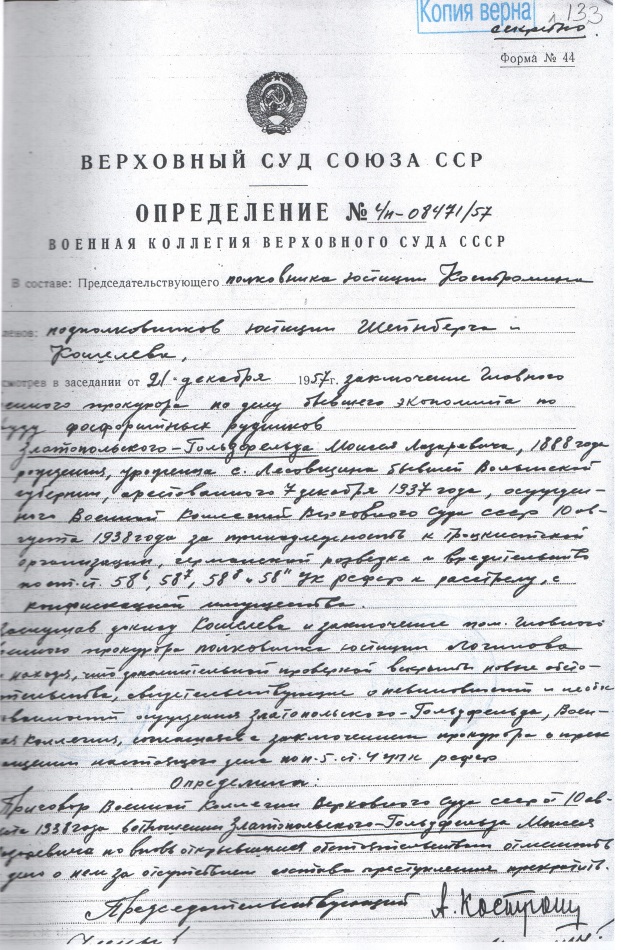 Копия верна
л. 133
секретно
Форма № 44
ВЕРХОВНЫЙ СУД СОЮЗА ССР
ОПРЕДЕЛЕНИЕ № 4н-08471/57
ВОЕННАЯ КОЛЛЕГИЯ ВЕРХОВНОГО СУДА СССР
В составе: Председательствующего полковника юстиции Костромина
ленов: подполковников юстиции Шейнберга и
Кошелева,
смотрев в заседании от 21 декабря 1957 г. заключение Главного
енного прокурора по делу бывшего экономиста по
фосфоритных рудников
Златопольского-Гольдфельда Моисея Лазаревича, 1888 года
рождения, уроженца с. Лесовщина бывшей Волынской
губернии, арестованного 7 декабря 1937 года, осужден-
ного Военной Коллегией Верховного Суда СССР 10 ав-
густа 1938 года за принадлежность к троцкистской
организации, германской разведке и вредительство
по ст.ст. 58⁶, 58⁷, 58⁸ и 58¹¹ УК РСФСР к расстрелу, с
конфискацией имущества.
Заслушав доклад Кошелева и заключение пом. Главного
енного прокурора полковника юстиции Логинова
и находя, что дополнительной проверкой вскрыты новые обсто-
ятельства, свидетельствующие о невиновности и необос
ованности осуждения Златопольского-Гольдфельда, Воен-
ая Коллегия, соглашаясь с заключением прокурора о прек
ащении настоящего дела по п. 5 ст. 4 УПК РСФСР
Определила:
Приговор Военной Коллегии Верховного Суда СССР от 10 ав-
уста 1938 года в отношении Златопольского-Гольдфельда Моисея
Лазаревича по вновь открывшимся обстоятельствам отменить
дело о нем за отсутствием состава преступления прекратить.
Председательствующий А. Костром
Члены